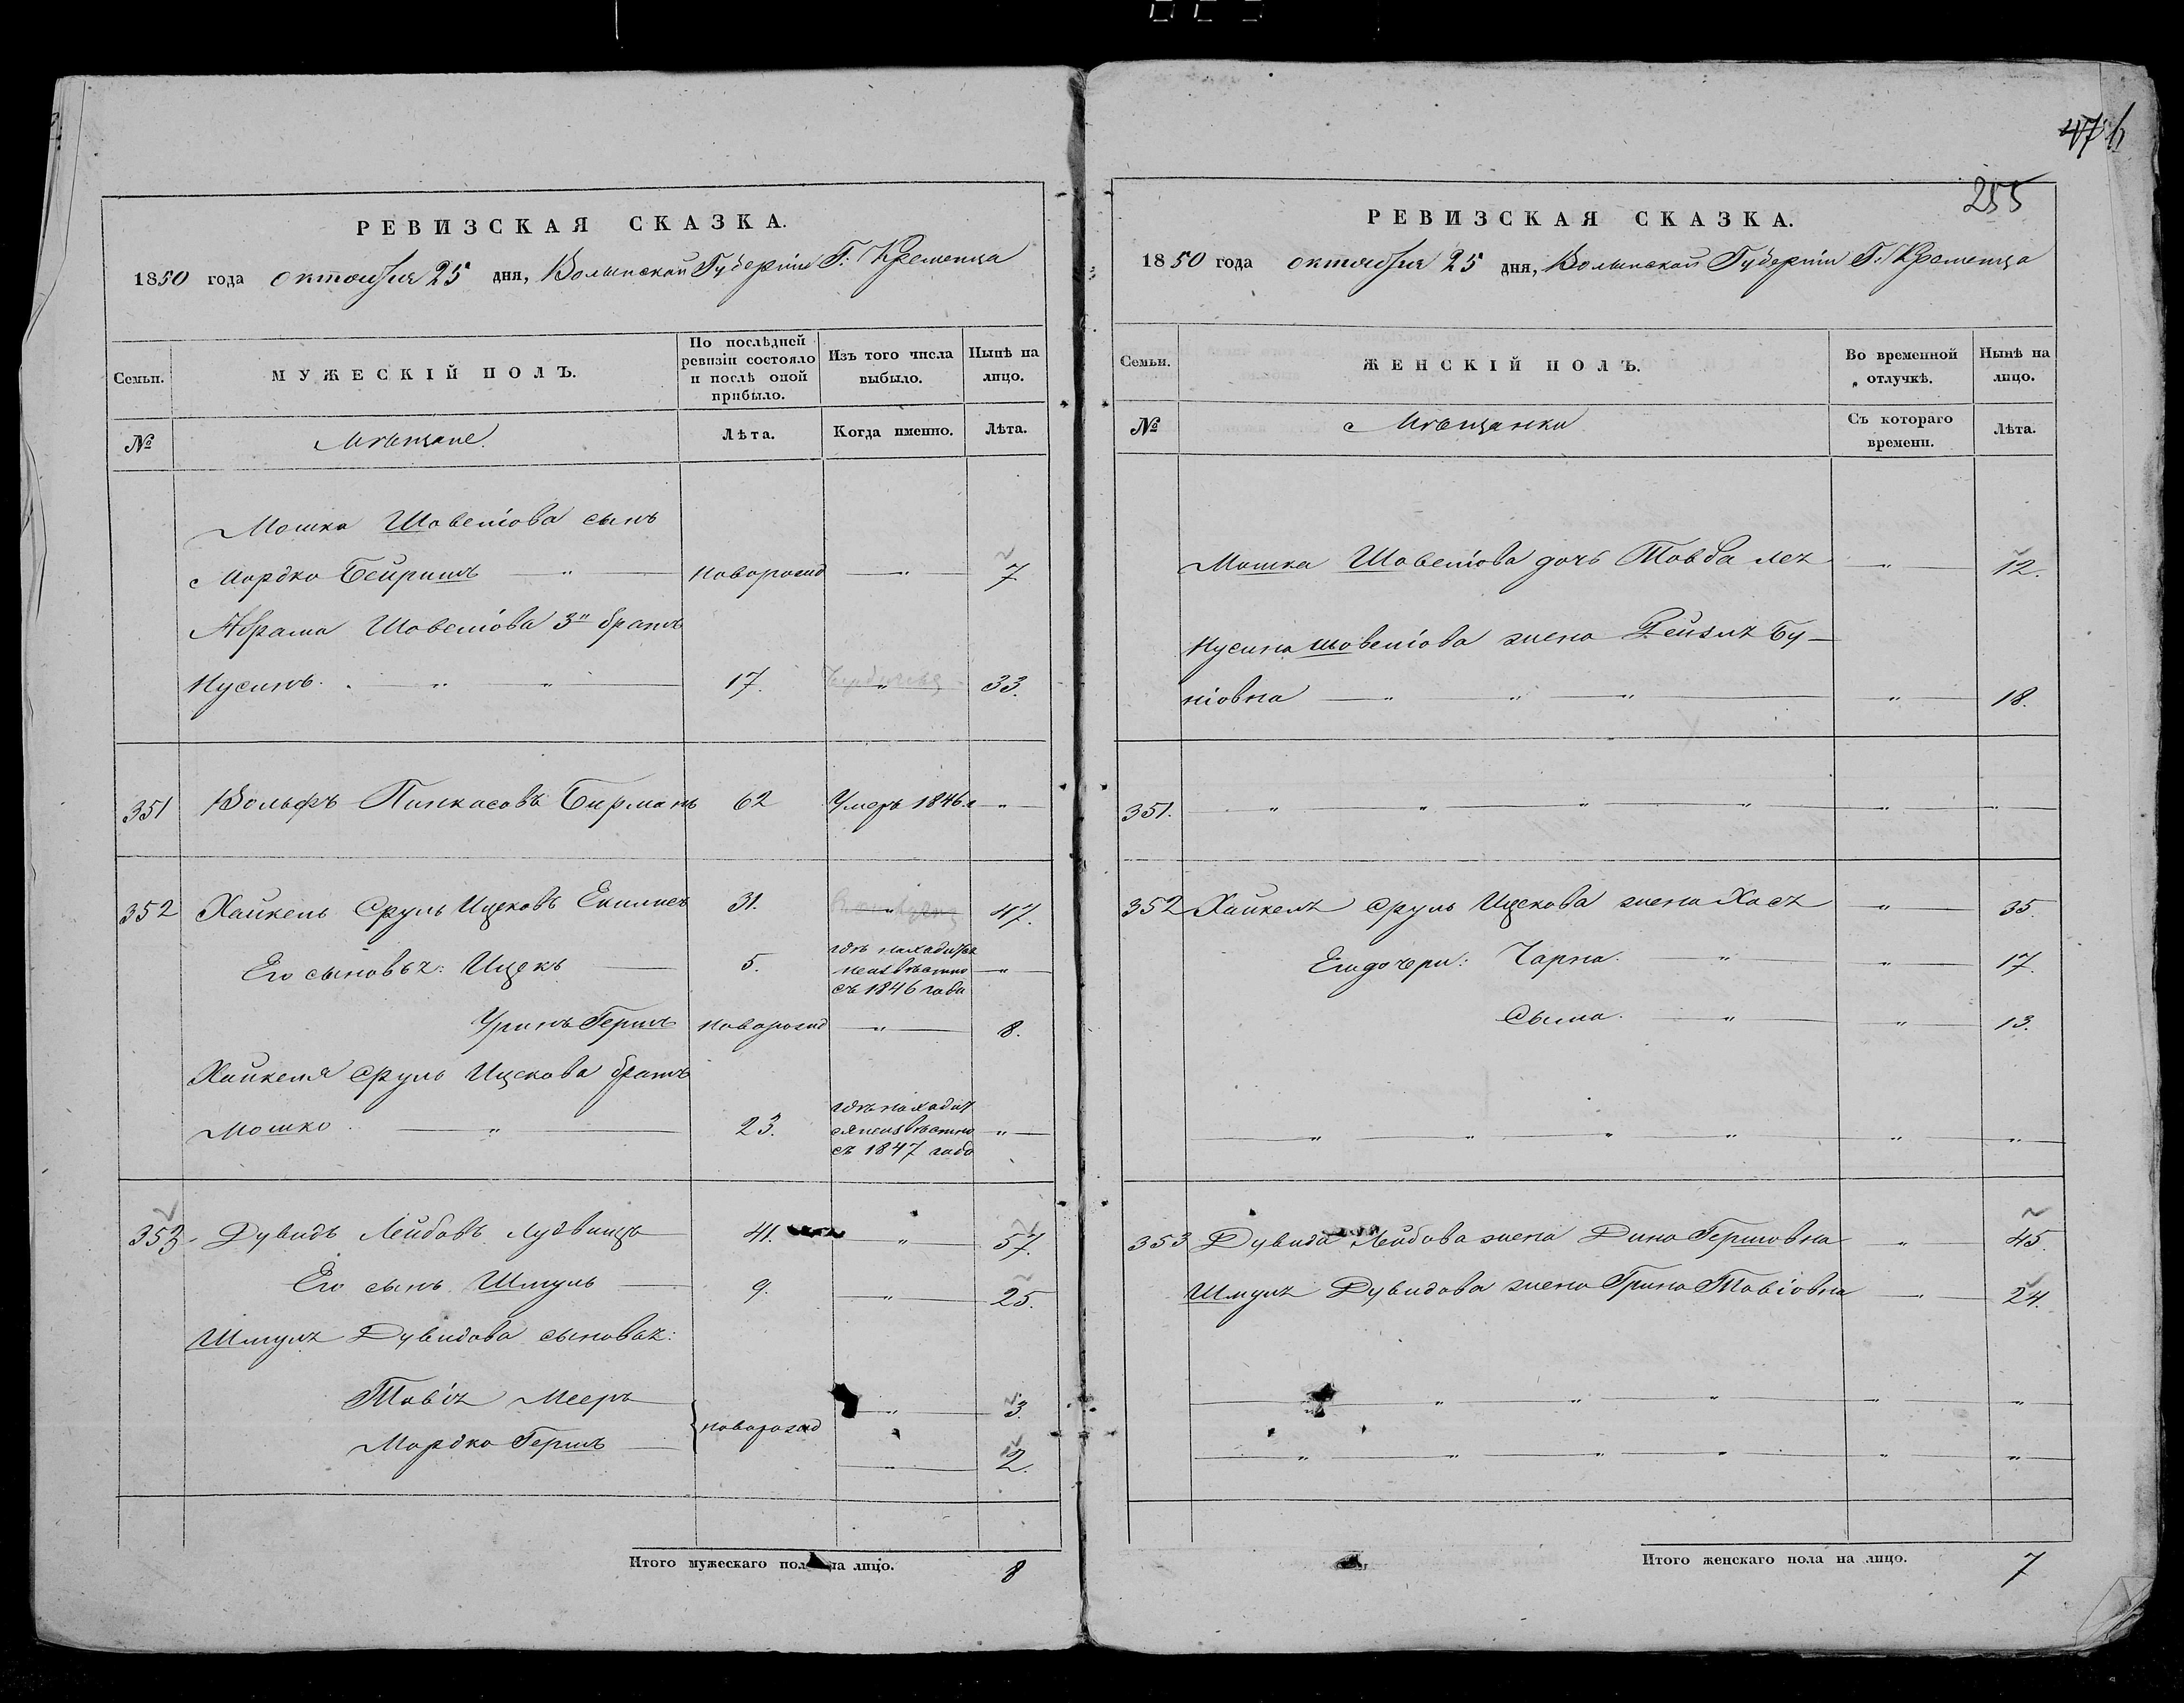 РЕВИЗСКАЯ СКАЗКА.
1850 года октября 25 дня, Волынской Губерніи Г. Кременца
Семьи.
МУЖЕСКІЙ ПОЛЪ.
По послѣдней ревизіи состояло и послѣ оной прибыло.
Изъ того числа выбыло.
Нынѣ на лицо.
№
Мѣщане.
Лѣта.
Когда именно.
Лѣта.
Мошка Шовеліова сынъ
Мордко Бейришъ — " — новорожд — " — 7
Абрама Шовеліова 3й братъ
Нусинъ. — " — " — 17. — " — 33.
351 Вольфъ Пинкасовъ Бирманъ 62 Умеръ 1846. — " —
352 Хайкель Сруль Ицковъ 31. — " — 47.
Его сыновьѧ: Ицекъ — 5. гдѣ находится неизвѣстно съ 1846 года — " —
Уринъ Гершъ новорожд — " — 8.
Хайкеля Сруль Ицкова братъ
Мошко. — " — 23. гдѣ находится неизвѣстно съ 1847 года — " —
353. Дувидъ Лейбовъ 41. " 57.
Его сынъ Шмуль — 9. — " — 25.
Шмуля Дувидова сыновья:
Товія Мееръ — новорожд — " — 3.
Мордко Гершъ — — " — 2.
Итого мужескаго пола на лицо. 8
47
255
РЕВИЗСКАЯ СКАЗКА.
1850 года октября 25 дня, Волынской Губерніи Г. Кременца
Семьи.
ЖЕНСКІЙ ПОЛЪ.
Во временной отлучкѣ.
Нынѣ на лицо.
№
Мѣщанки
Съ котораго времени.
Лѣта.
Мошка Шовеліова дочь Товба Лея — " — 12.
Нусина Шовеліова жена Рейзя Бу-
ніовна — " — " — " — " — 18.
351. — " — " — " — " — " — " —
352 Хайкеля Сруль Ицкова жена Хася — " — 35.
Его дочери: Чарна. — " — " — 17.
Сыма. — " — " — 13.
— " — " — " — " — " — " —
353 Дувида Лейбова жена Дина Гершовна " 45.
Шмуля Дувидова жена Грина Товіовна — " — 24.
— " — " — " — " — "
— " — " — " — " — " — " —
Итого женскаго пола на лицо. 7